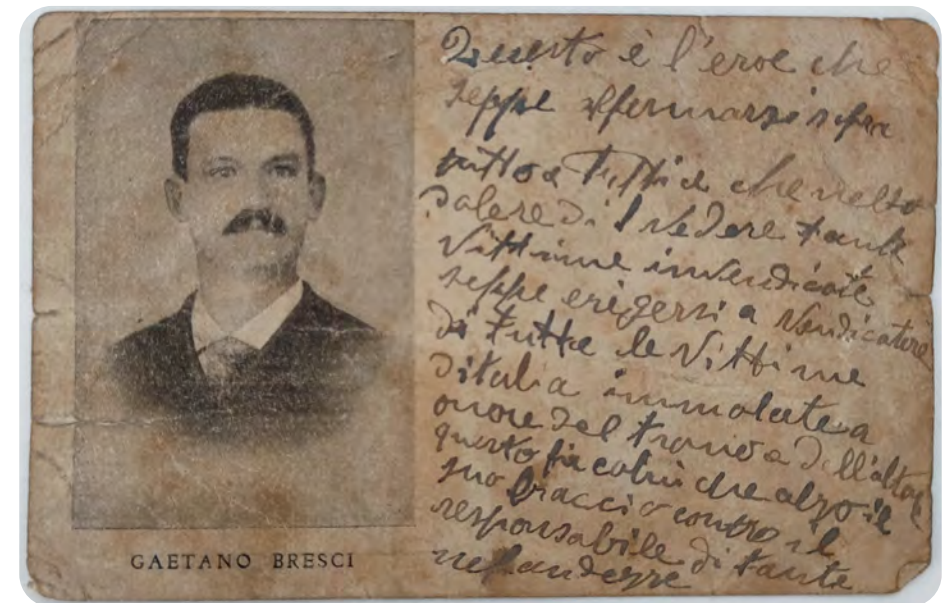 Questo è l'eroe che
seppe affermarsi sopra
tutto e tutti e che nello
dolore di vedere tante
Vittime invendicate
seppe erigersi a Vendicatore
di tutte le Vittime
d'italia immolate a
onore del trono e dell'altare
questo fu colui che alzo il
suo braccio contro il
responsabile di tante
nefandezze
GAETANO BRESCI